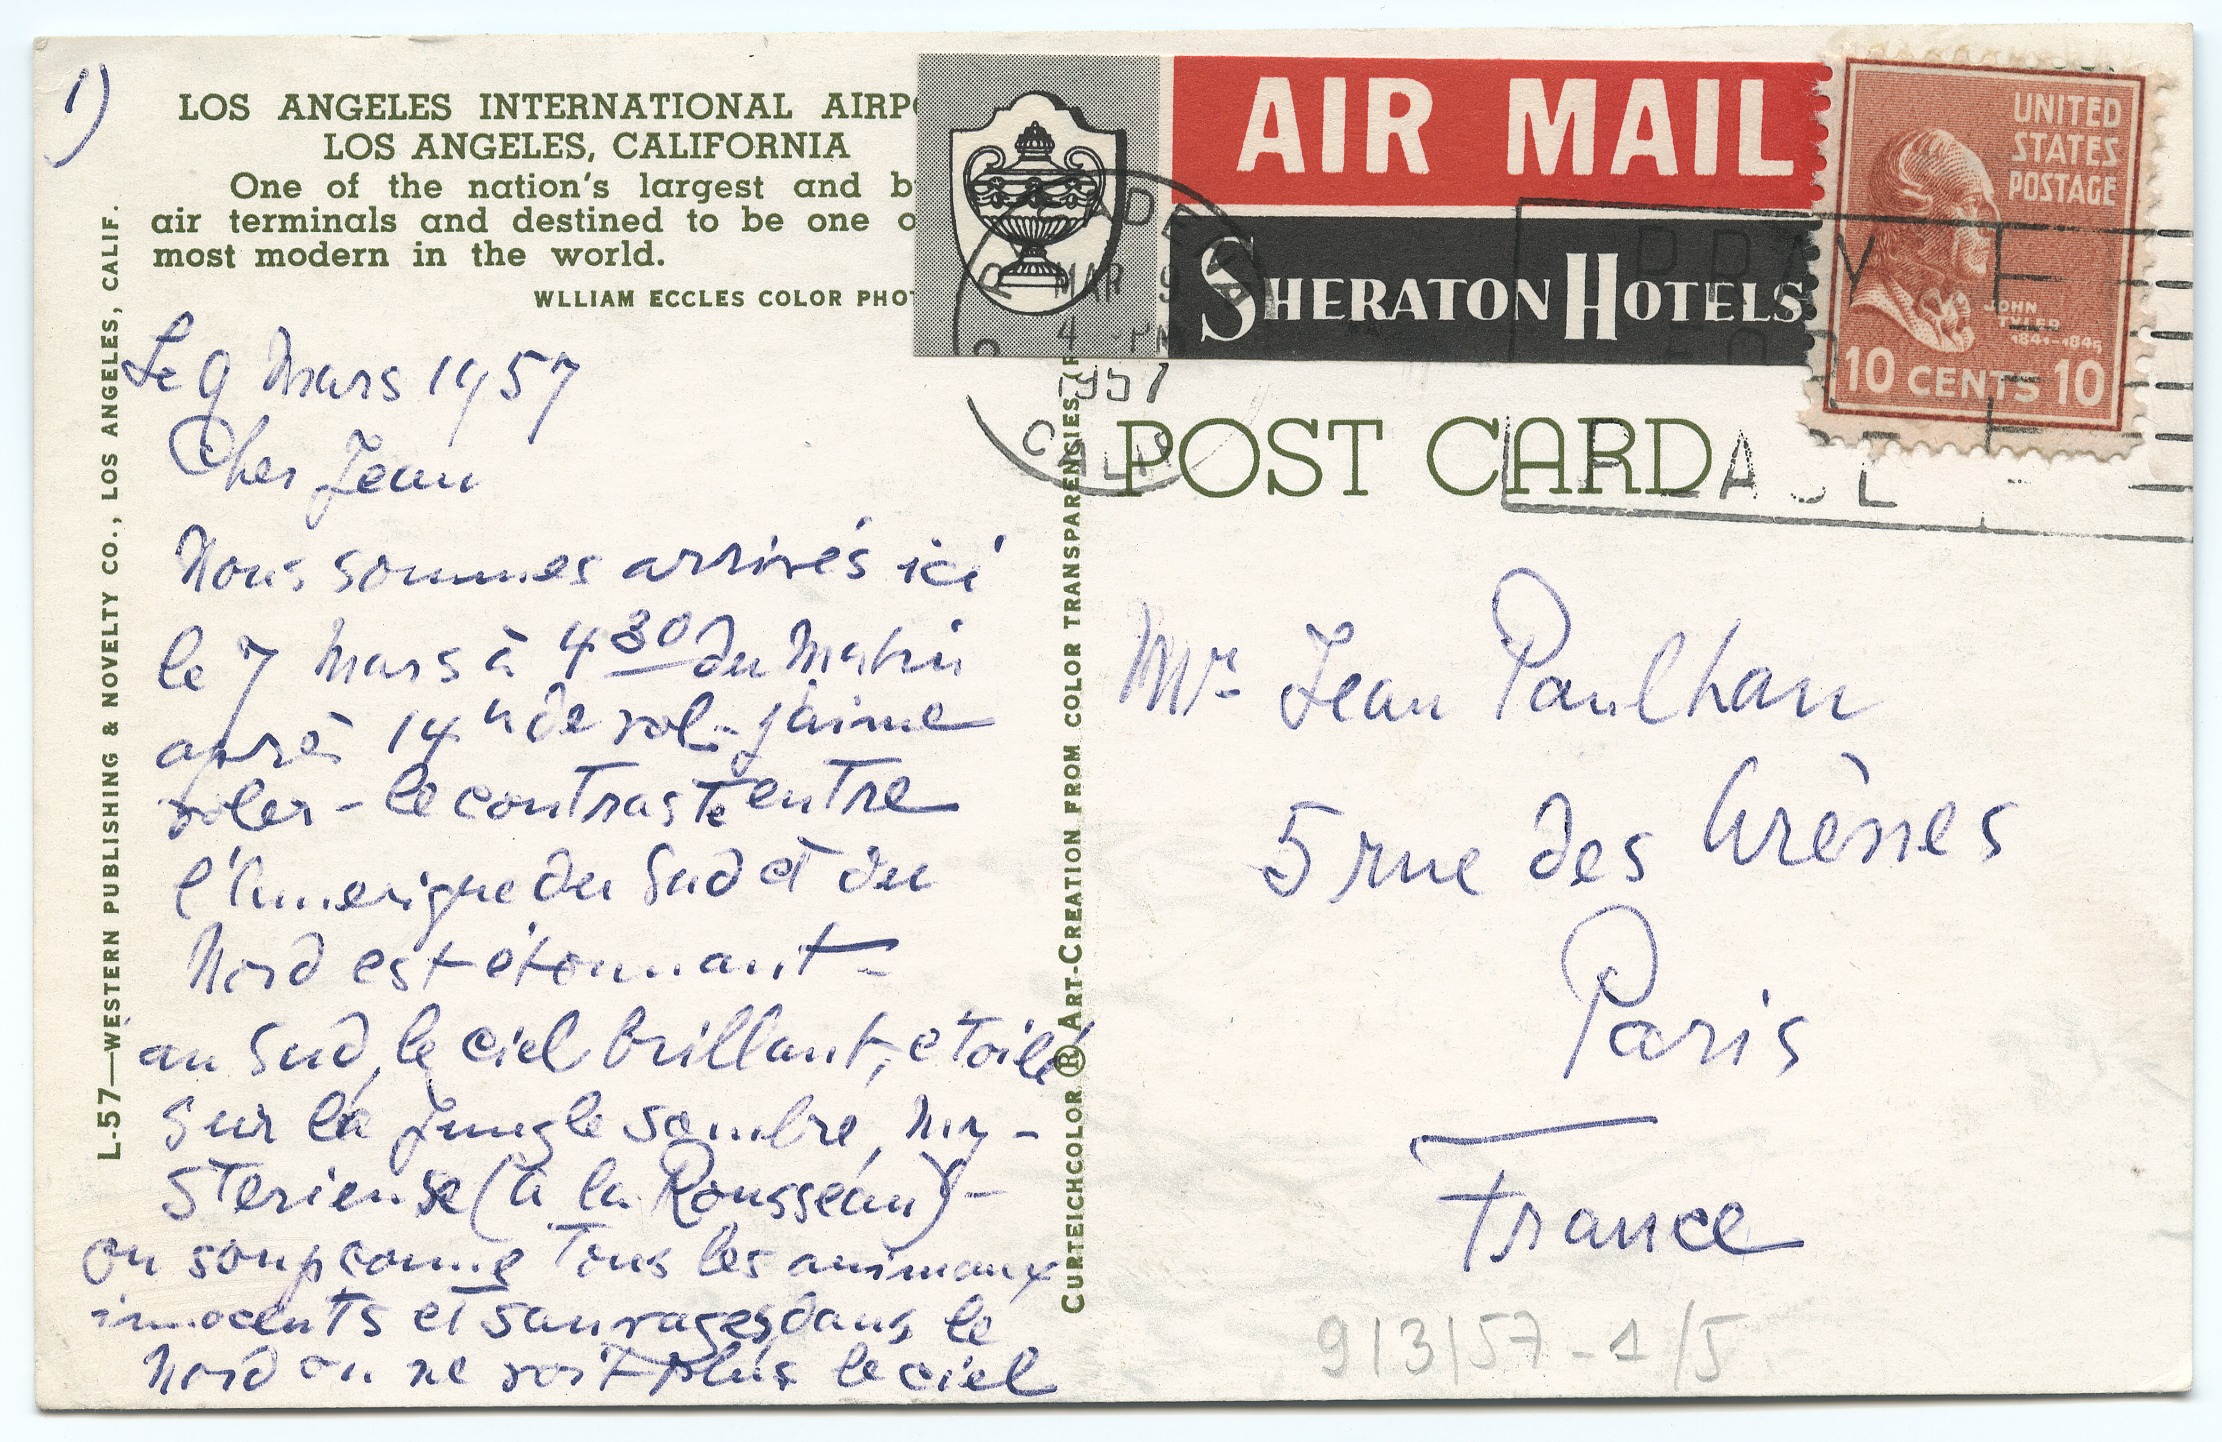 1)
LOS ANGELES INTERNATIONAL AIRPO
LOS ANGELES, CALIFORNIA
One of the nation's largest and b
air terminals and destined to be one o
most modern in the world.
WLLIAM ECCLES COLOR PHOT
L-57—WESTERN PUBLISHING & NOVELTY CO., LOS ANGELES, CALIF.
Le 9 Mars 1957
Cher Jean
Nous sommes arrivés ici
le 7 Mars à 4 30 du Matin
après 14 h de vol - j'aime
voler - le contraste entre
l'Amerique du Sud et du
Nord est étonnant -
au Sud, le ciel brillant, étoilé
sur la Jungle sombre, my-
sterieuse (à la Rousseau) -
on soupconne tous les animaux
innocents et sauvages, dans le
Nord on ne voit plus le ciel
CURTEICHCOLOR ® ART-CREATION FROM COLOR TRANSPARENCIES (R
AIR MAIL
SHERATON HOTELS
UNITED
STATES
POSTAGE
JOHN
TYLER
1841-1845
10 CENTS 10
MAR 9
4 PM
1957
CALIF
PRAY
FOR
POST CARD
Mr Jean Paulhan
5 rue des Arènes
Paris
France
9/3/57 - 1/5